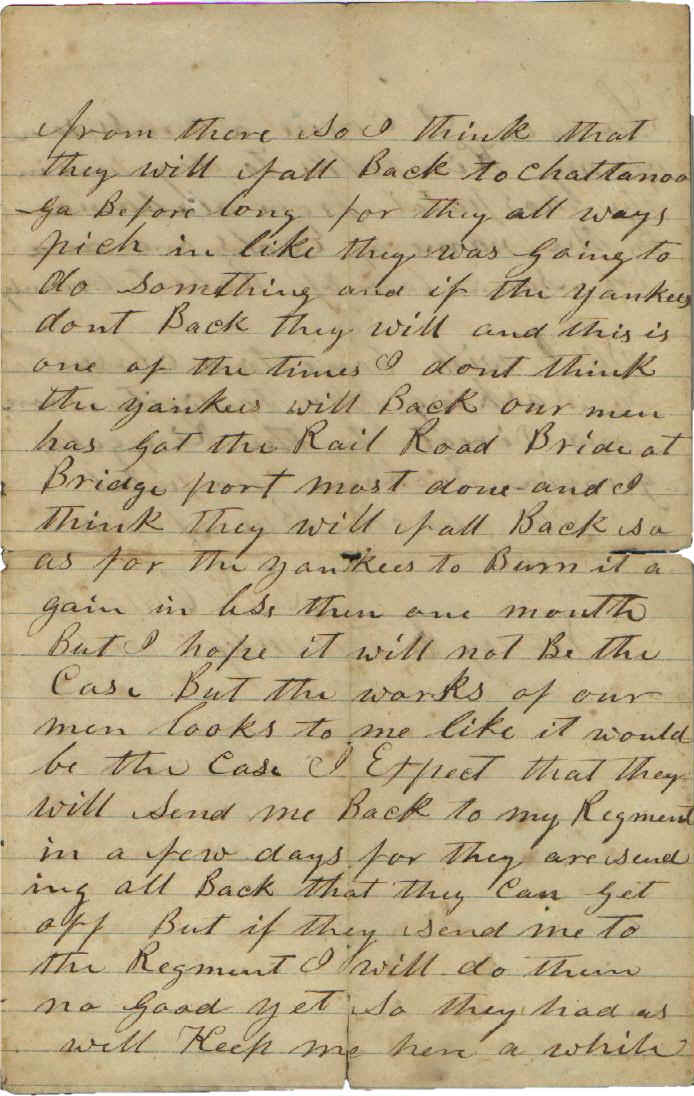 from there so I think that
they will fall Back to Chattanoo
ga Before long for they all ways
pich in like they was going to
do something and if the yankees
dont Back they will and this is
one of the times I dont think
the yankees will Back our men
has got the Rail Road Bride at
Bridge port most done and I
think they will fall Back so
as for the yankees to Burn it a
gain in less then one month
But I hope it will not Be the
Case But the works of our
men looks to me like it would
be the Case I Expect that they
will send me Back to my Regment
in a few days for they are send
ing all Back that they Can get
off But if they send me to
the Regment I will do them
no good yet so they had as
well Keep me here a while